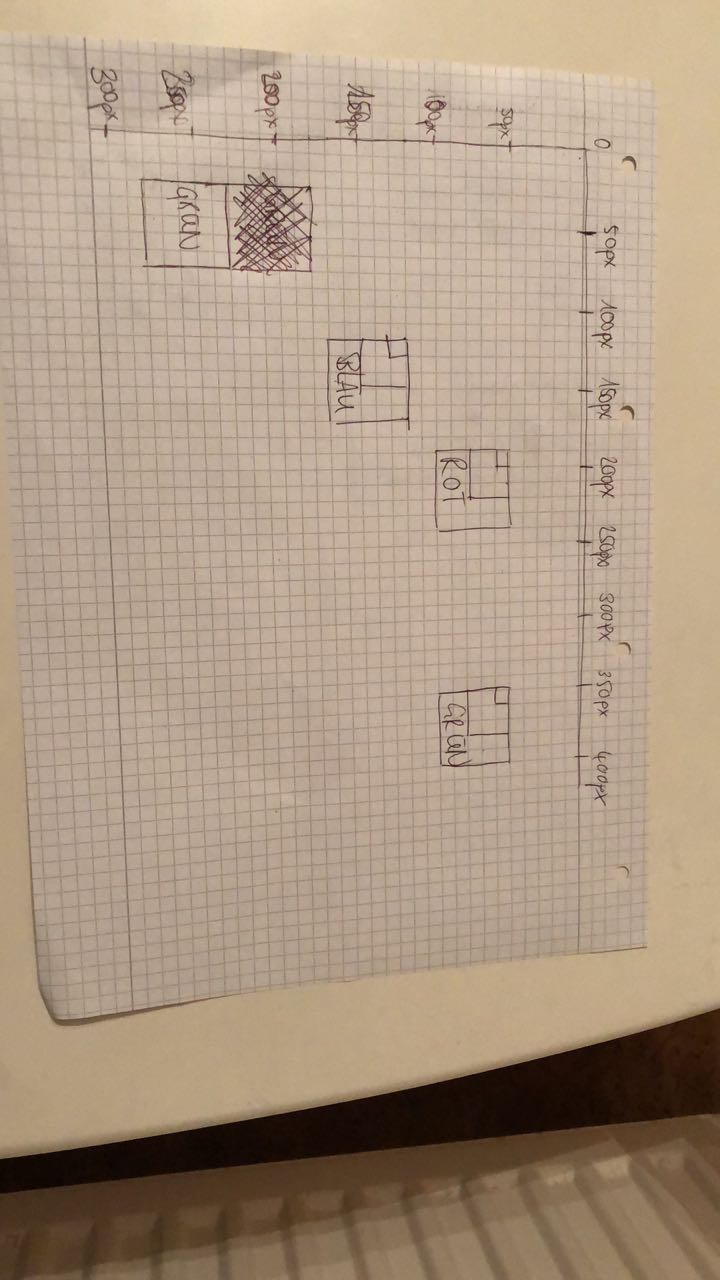 0
50px
100px
150px
200px
250px
300px
350px
400px
50px
100px
150px
200px
250px
300px
ROT
GRÜN
BLAU
GRÜN